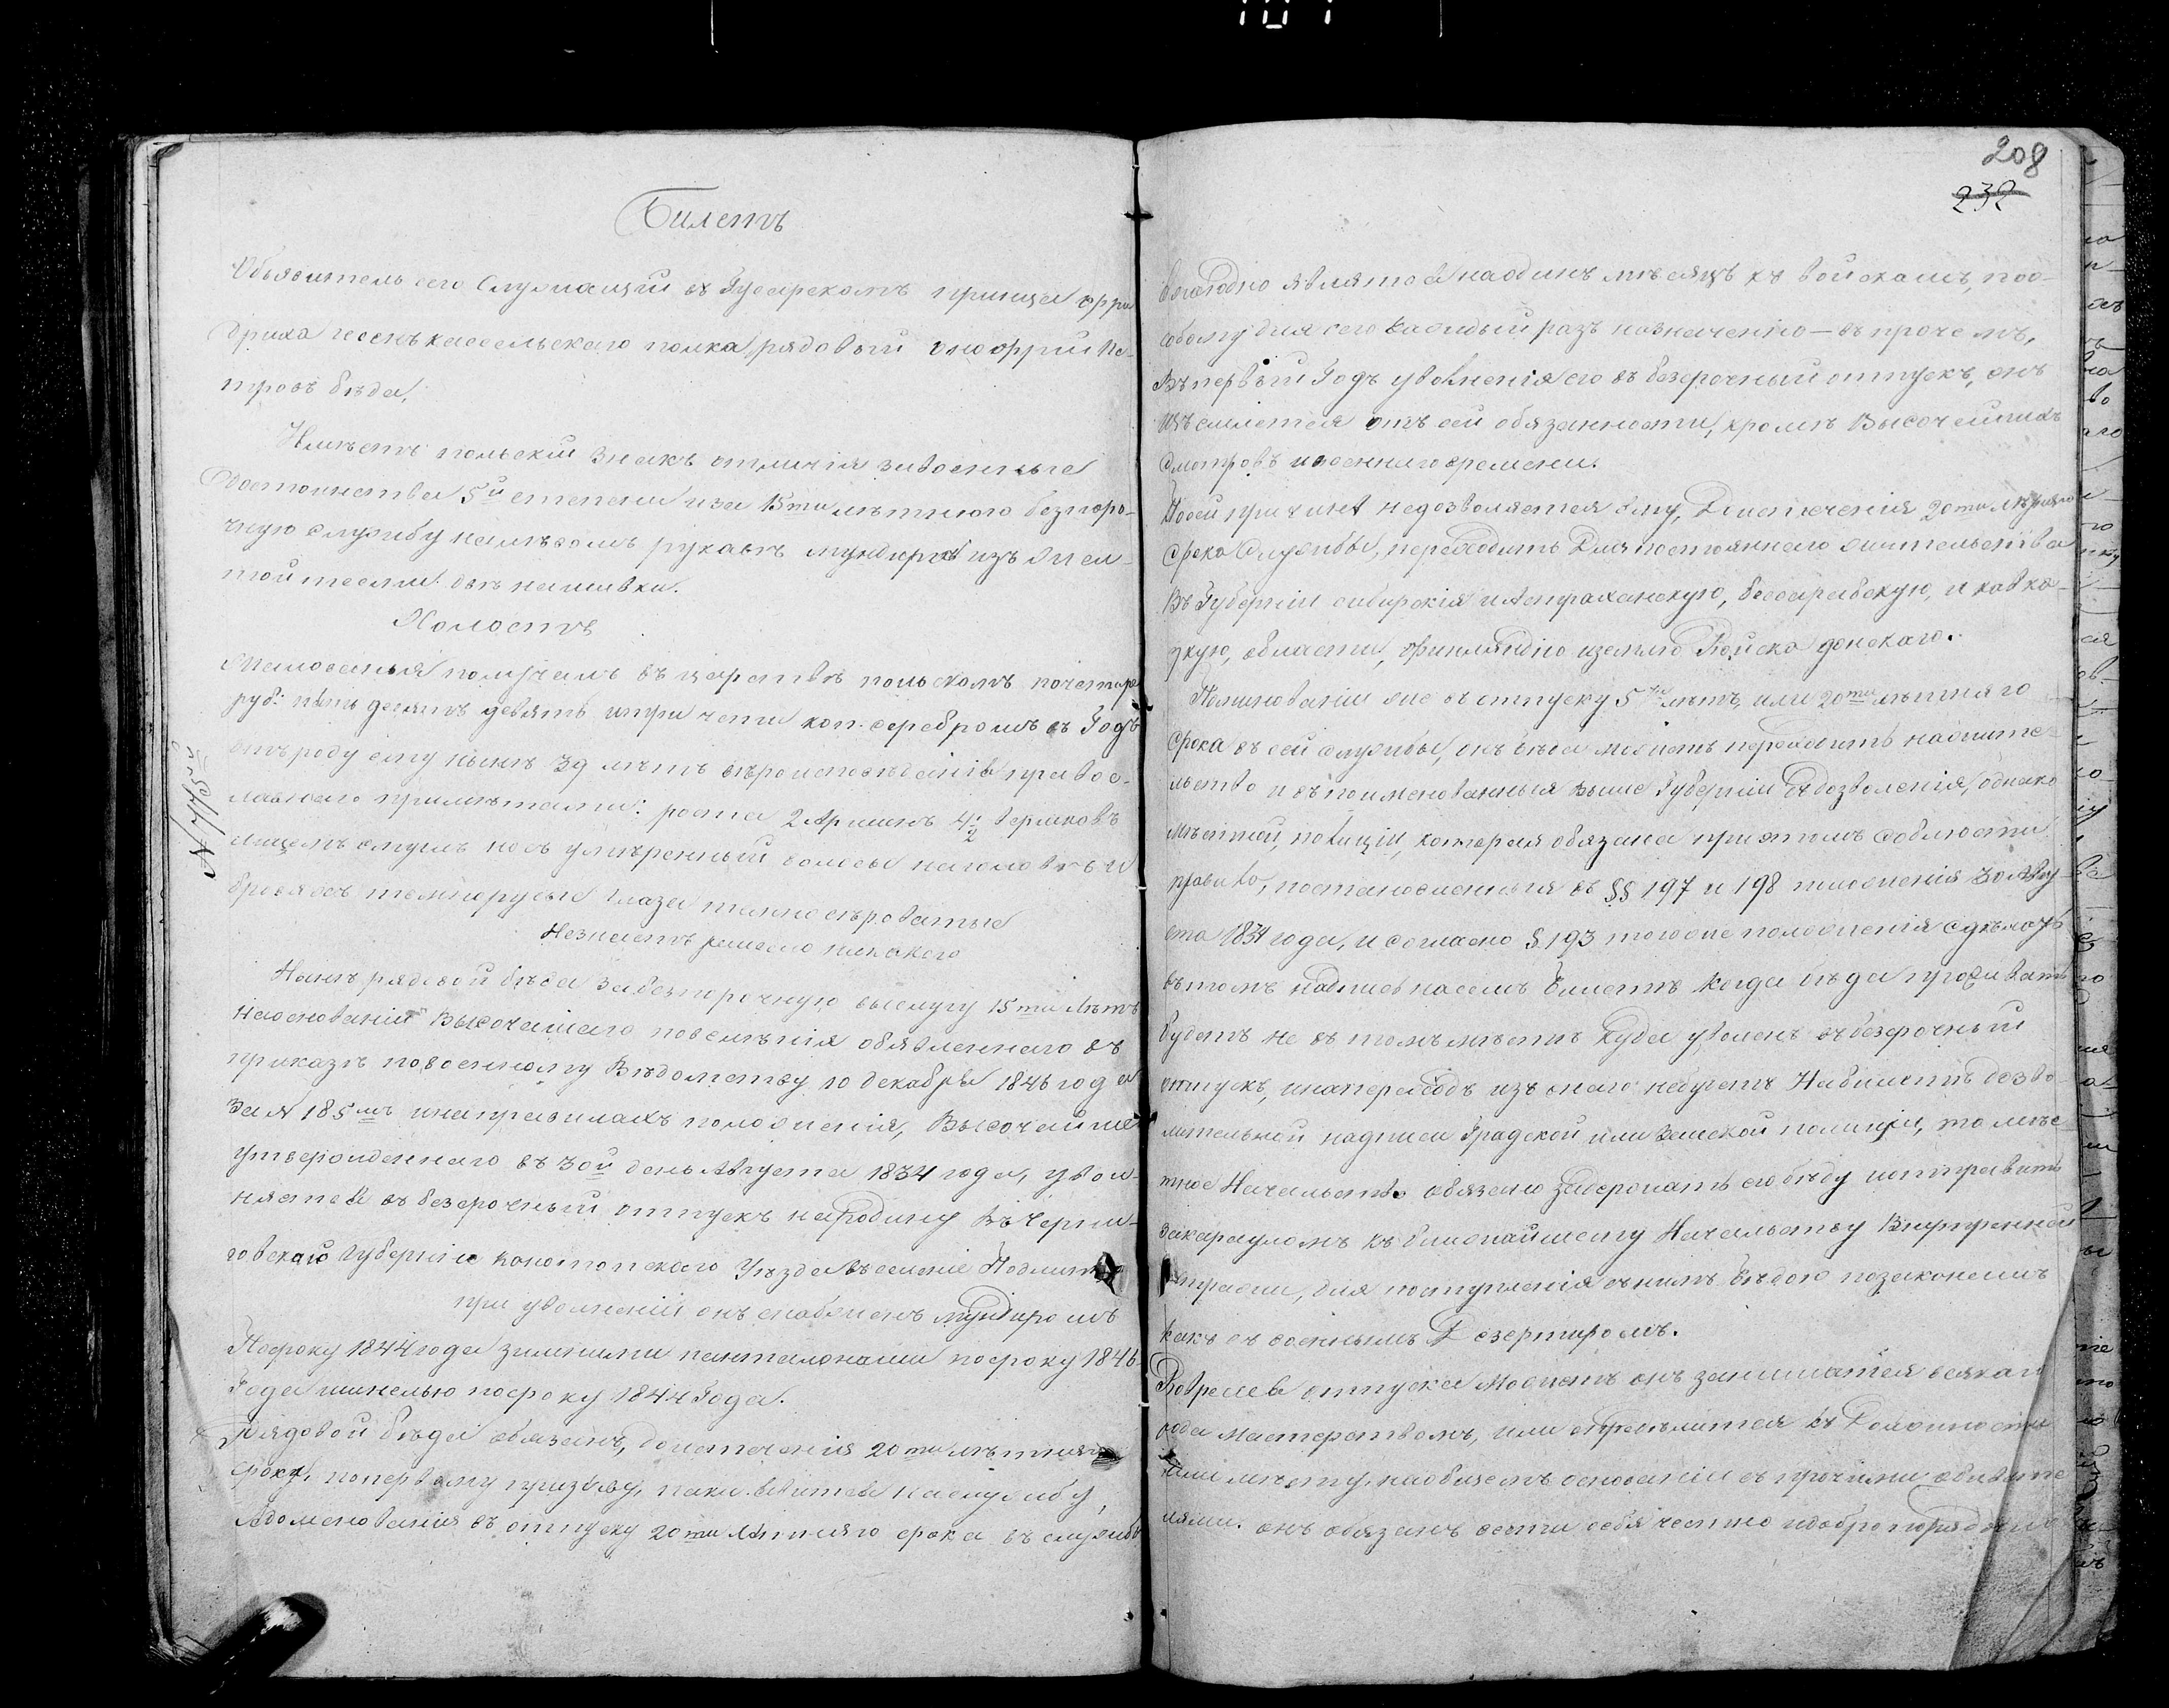 Билетъ
Объявитель сего Служащій въ Гусарскомъ принца фри
дриха гесенъ кассельскаго полка рядовый онофрій Пе-
тровъ бѣда,
Имѣетъ польскій знакъ отличія за военные
Достоинства 5й степени и за 15ти лѣтнюю безпоро-
чную службу на лѣвомъ рукавѣ мундира изъ жел-
той тесмы нашивки.
Холостъ
Жалованья получалъ въ царствѣ польскомъ
руб: пять десятъ девять и три чети коп. серебромъ въ Годъ
отъ роду ему нынѣ 39 лѣтъ вѣроисповѣданія правос-
лавнаго примѣтами: роста 2 Аршинъ 4 1/2 вершковъ
лицемъ смуглъ носъ умѣренный волосы на головѣ и
бровяхъ темнорусые глаза темносѣроватые
Незнаетъ ремесло никакого
Нынѣ рядовой бѣда за безпорочную выслугу 15ти Лѣтъ
На основаніи Высочайшаго повелѣнія объявленнаго въ
приказѣ по военному Вѣдомству 10 декабря 1846 года
За N 185мъ и на правилахъ положенія, Высочайше
утвержденнаго въ 30й день Августа 1834 года, увол-
няется въ безсрочный отпускъ на родину Въ Черни-
говскаю Губернію конотопскаго Уѣзда въ селеніе
при уволненіи онъ снабженъ мундиромъ
По сроку 1844 года зимними панталонами по сроку 1846
Года шинелью по сроку 1844 Года.
Рядовой бѣда обязанъ, до истеченія 20ти лѣтняго
сроку, по первому призыву, явится на службу,
А до менованія въ отпуску 20ти Лѣтняго срока въ службѣ
208
232
ежегодно являтся на одинъ мѣсяцъ къ войскамъ, поо-
собому для сего каждый разъ назначенію — въ прочемъ,
Въ первый Годъ уволненія его въ безсрочный отпускъ, онъ
отъ сей обязанности, кромѣ Высочайшихъ
смотровъ и военнаго времени.
По сей причинѣ недозволяется ему, До истеченія 20ти лѣтняго
срока Службы, переходить Для постояннаго жительства
Въ Губерніи сибирскія и Астраханскую, бессарабскую, и кавка-
зкую, области, финляндію и землю Войска донскаго.
По минованіи же въ отпуску 5ти лѣтъ, или 20ти лѣтняго
срока въ сей службы, онъ бѣда можетъ переходить на жите-
льство и въ поименованныя выше Губерніи съ дозволенія, однако
мѣстной, полиціи, которая обязана при этомъ соблюсти
правило, постановленныя въ §§ 197 и 198 положенія 30 Авгу-
ста 1834 года, и согласно § 193 того же положенія сдѣлать
въ томъ надпись на семъ билетѣ Когда бѣда проживать
будетъ не въ томъ мѣстѣ куда уволенъ въ безсрочный
отпускъ, и на переходъ изъ онаго небудетъ На билетѣ дозво-
лительной надписи Градской, или Земской полиціи, то мѣс-
тное Начальство обязано задержать его бѣду и отправить
за карауломъ къ ближайшему Начальству Внутренней
стражи, для поступленія съ нимъ Бѣдою по законамъ
какъ съ военнымъ Дезертиромъ.
Во время отпуска Можетъ онъ заниматся всякаго
рода мастерствомъ, или опредѣлится къ Должности
или мѣсту, на общемъ основаніи съ прочими обывате-
лями. онъ обязанъ вести себя честно и добропорядочно